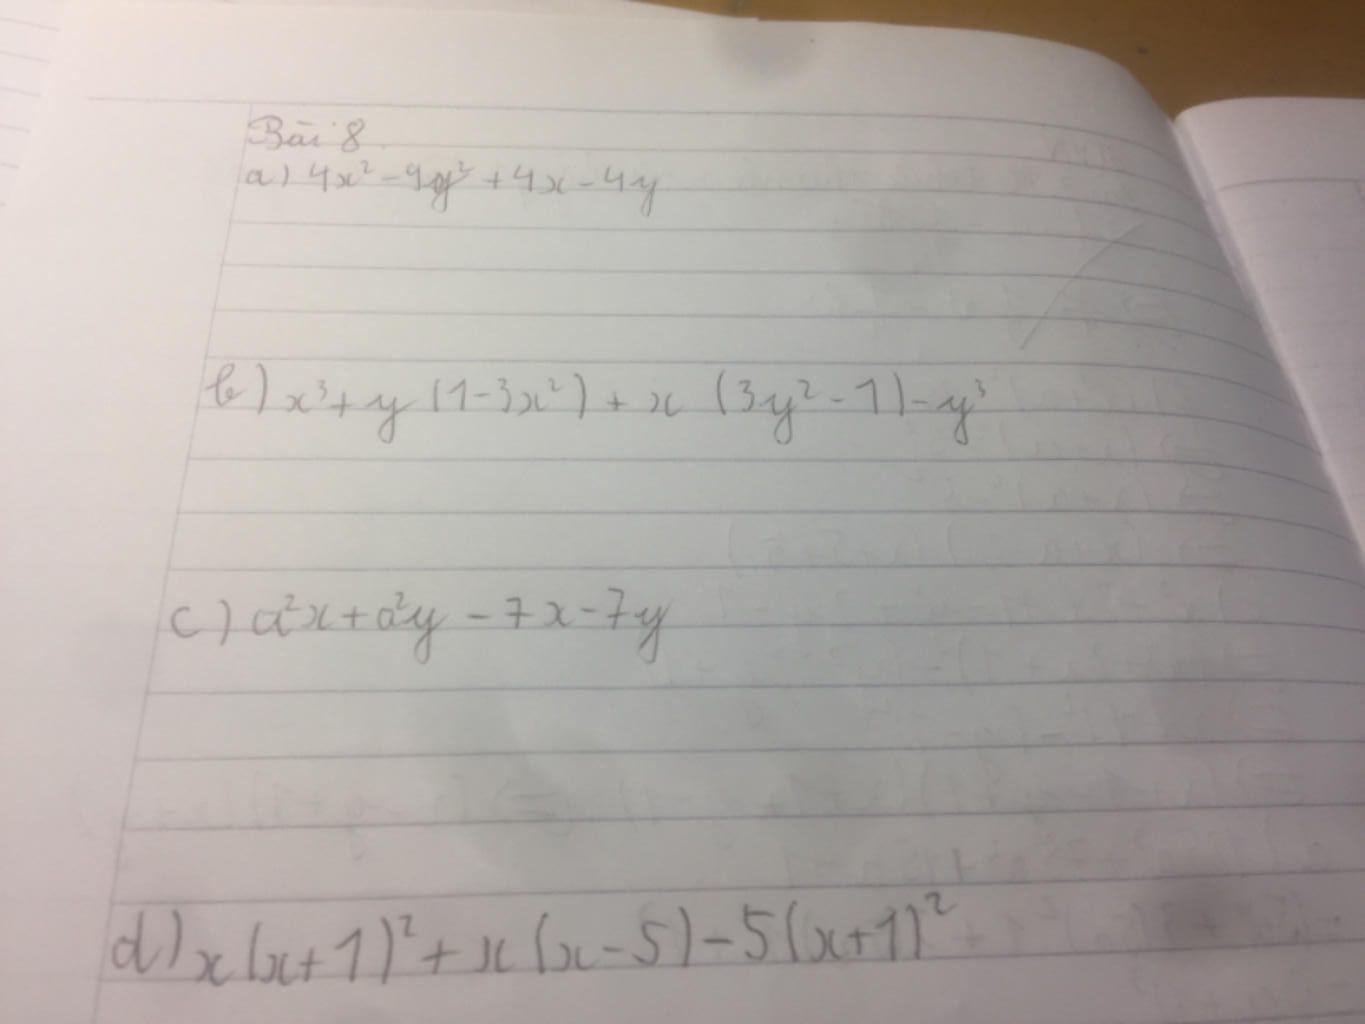 Bài 8
a) 4x² - 4y² + 4x - 4y
b) x³ + y (1 - 3x²) + x (3y² - 1) - y³
c) a²x + a²y - 7x - 7y
d) x(x+1)² + x(x-5) - 5(x+1)²